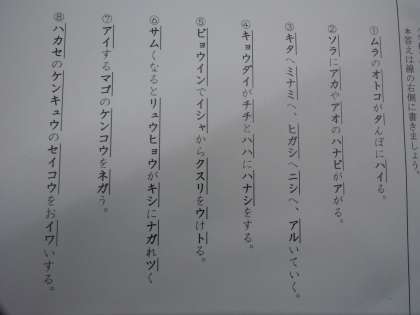 *答えは線の右側に書きましょう。
①ムラのオトコが夕んぼにハイる。
②ソラにアカやアオのハナビがアがる。
③キタへミナミへ、ヒガシへニシへ、アルいていく。
④キョウダイがチチとハハにハナシをする。
⑤ビョウインでイシャからクスリをウけトる。
⑥サムくなるとリュウヒョウがキシにナガれツく
⑦アイするマゴのケンコウをネガう。
⑧ハカセのケンキュウのセイコウをおイワいする。